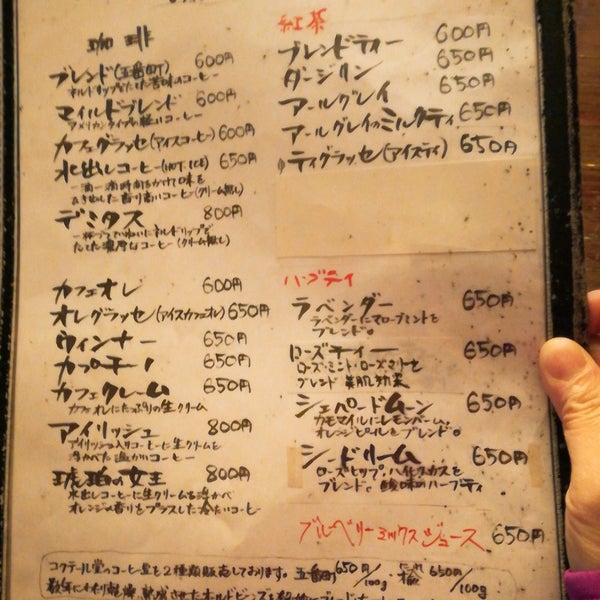 珈琲
ブレンド(五番町) 600円
ネルドリップでたてた苦味のコーヒー
マイルドブレンド 600円
アメリカンタイプの軽いコーヒー
カフェグラッセ(アイスコーヒー) 600円
水出しコーヒー(HOT, ICE) 650円
一滴一滴時間をかけて味を
ひき出した香り高いコーヒー(クリーム無し)
デミタス 800円
一杯づつていねいにネルドリップで
たてた濃厚なコーヒー(クリーム無し)
カフェオレ 600円
オレグラッセ(アイスカフェオレ) 650円
ウィンナー 650円
カプチーノ 650円
カフェクレーム 650円
カフェオレにたっぷりの生クリーム
アイリッシュ 800円
アイリッシュ入りコーヒーに生クリームを
浮かべた温かいコーヒー
琥珀の女王 800円
水出しコーヒーに生クリームを浮かべ
オレンジの香りをプラスした冷たいコーヒー
紅茶
ブレンドティー 600円
ダージリン 650円
アールグレイ 650円
アールグレイのミルクティ 650円
ティグラッセ(アイスティ) 650円
ハーブティ
ラベンダー 650円
ラベンダーにマローブとミントを
ブレンド。
ローズティー 650円
ローズ・ミント・ローズマリーを
ブレンド 美肌効果
シェパードムーン 650円
カモマイルにレモンバーム、
オレンジピールをブレンド。
シードリーム 650円
ローズヒップ、ハイビスカスを
ブレンド。酸味のハーブティ
ブルーベリーミックスジュース 650円
コクテール堂のコーヒー豆を2種類販売しております。五番町 650円/100g 650円/100g
数年にわたり乾燥、熟成させたオールドビーンズを